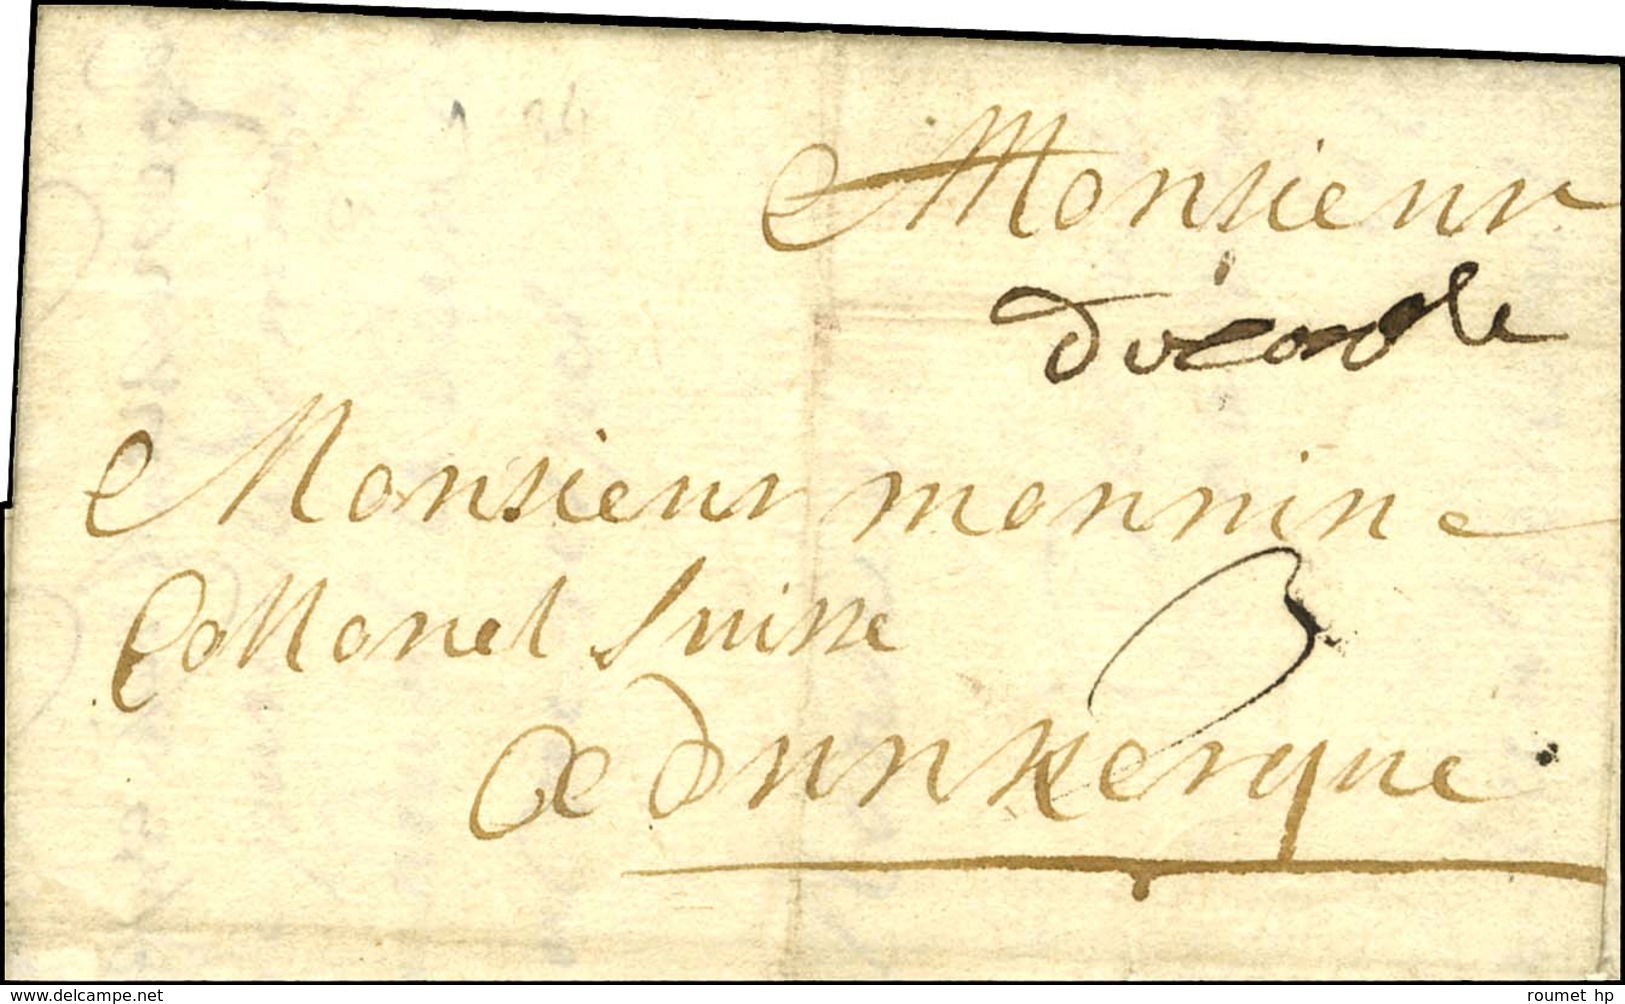 Monsieur
Monsieur monnin
Collonel suisse
A dunkerque
3
www.delcampe.net
roumet hp